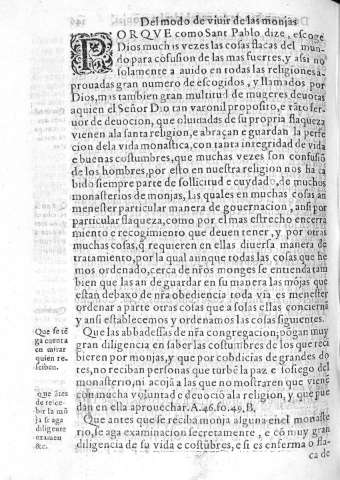 Del modo de viuir de las monjas
PORQVE como Sant Pablo dize, escoge
Dios muchas vezes las cosas flacas del mun-
do para confusion de las mas fuertes, y assi no
solamente a auido en todas las religiones a-
prouadas gran numero de escogidos, y llamados por
Dios, mas tambien gran multitud de mugeres deuotas
a quien el Señor Dio tan varonil proposito, e tãto fer-
uor de deuocion, que oluidadas de su propria flaqueza
vienen ala santa religion, e abraçan e guardan la perfe
cion dela vida monastica, con tanta integridad de vida
e buenas costumbres, que muchas vezes son confusiõ
de los hombres, por esto en nuestra religion nos ha ca
bido siempre parte de sollicitud e cuydado, de muchos
monasterios de monjas, Las quales en muchas cosas an
menester particular manera de gouernacion, assi por su
particular flaqueza, como por el mas estrecho encerra
miento e recogimiento que deuen tener, y por otras
muchas cosas, q̃ requieren en ellas diuersa manera de
tratamiento, por la qual aunque todas las cosas que he
mos ordenado, cerca de nr̃os monges se entienda tam
bien que las an de guardar en su manera las mõjas que
estan debaxo de nr̃a obediencia toda via es menester
ordenar a parte otras cosas que a solas ellas concierna
y ansi establecemos y ordenamos las cosas siguientes.
Que se tẽ
ga cuenta
en mirar
quien re-
sciben.
Que las abbadessas de nr̃a congregacion, põgan muy
gran diligencia en saber las costumbres de los que rec
bieren por monjas, y que por cobdicias de grandes do
tes, no reciban personas que turbẽ la paz e sosiego del
monasterio, ni acojã a las que no mostraren que vienẽ
con mucha voluntad e deuociõ ala religion, y que pue
dan en ella aprouechar. A. 46. fo. 49, B,
que ãtes
de rece-
bir la mõ
ja se aga
diligente
examen
&c.
Que antes que se reciba monja alguna en el monaste
rio, se aga examinacion secretamente, e cõ muy gran
diligencia de su vida e costũbres, e si es enferma o fla-
ca de